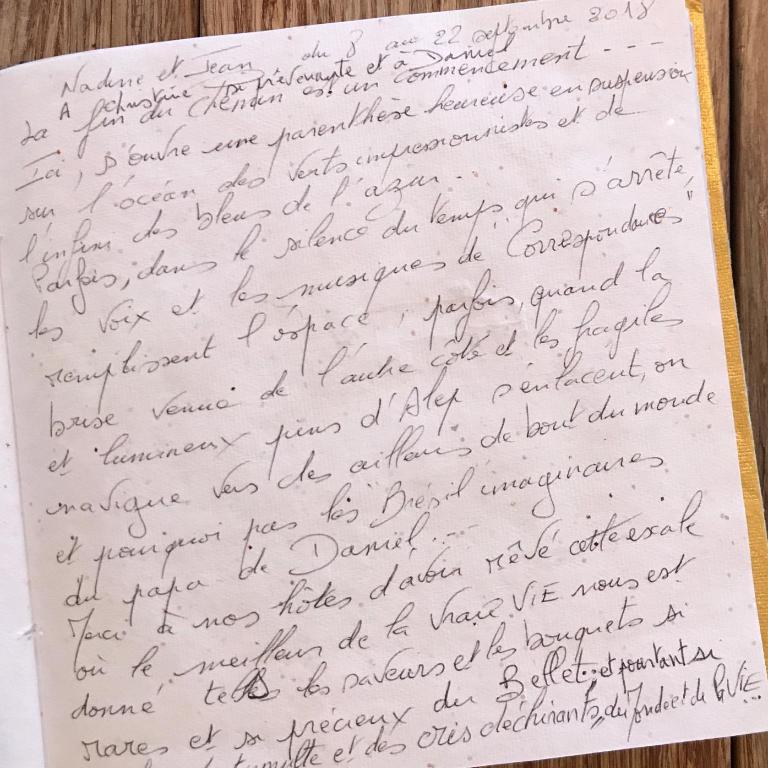 Nadine et Jean du 8 au 22 septembre 2018
A Christine si prévenante et à Daniel
La fin du chemin est un commencement - - -
Ici, s'ouvre une parenthèse heureuse en suspension
sur l'océan des verts impressionnistes et de
l'infini des bleus de l'azur.
Parfois, dans le silence du temps qui s'arrête,
les voix et les musiques de "Correspondances"
remplissent l'espace, parfois, quand la
brise venue de l'autre côté et les fragiles
et lumineux pins d'Alep s'enlacent, on
navigue vers des ailleurs de bout du monde
et pourquoi pas les Brésil imaginaires
du papa de Daniel...
Merci à nos hôtes d'avoir rêvé cette escale
où le meilleur de la vraie VIE nous est
donné tels les saveurs et les bouquets si
rares et si précieux du Bellet.. et pourtant si
tumulte et des cris déchirants du monde et de la VIE...